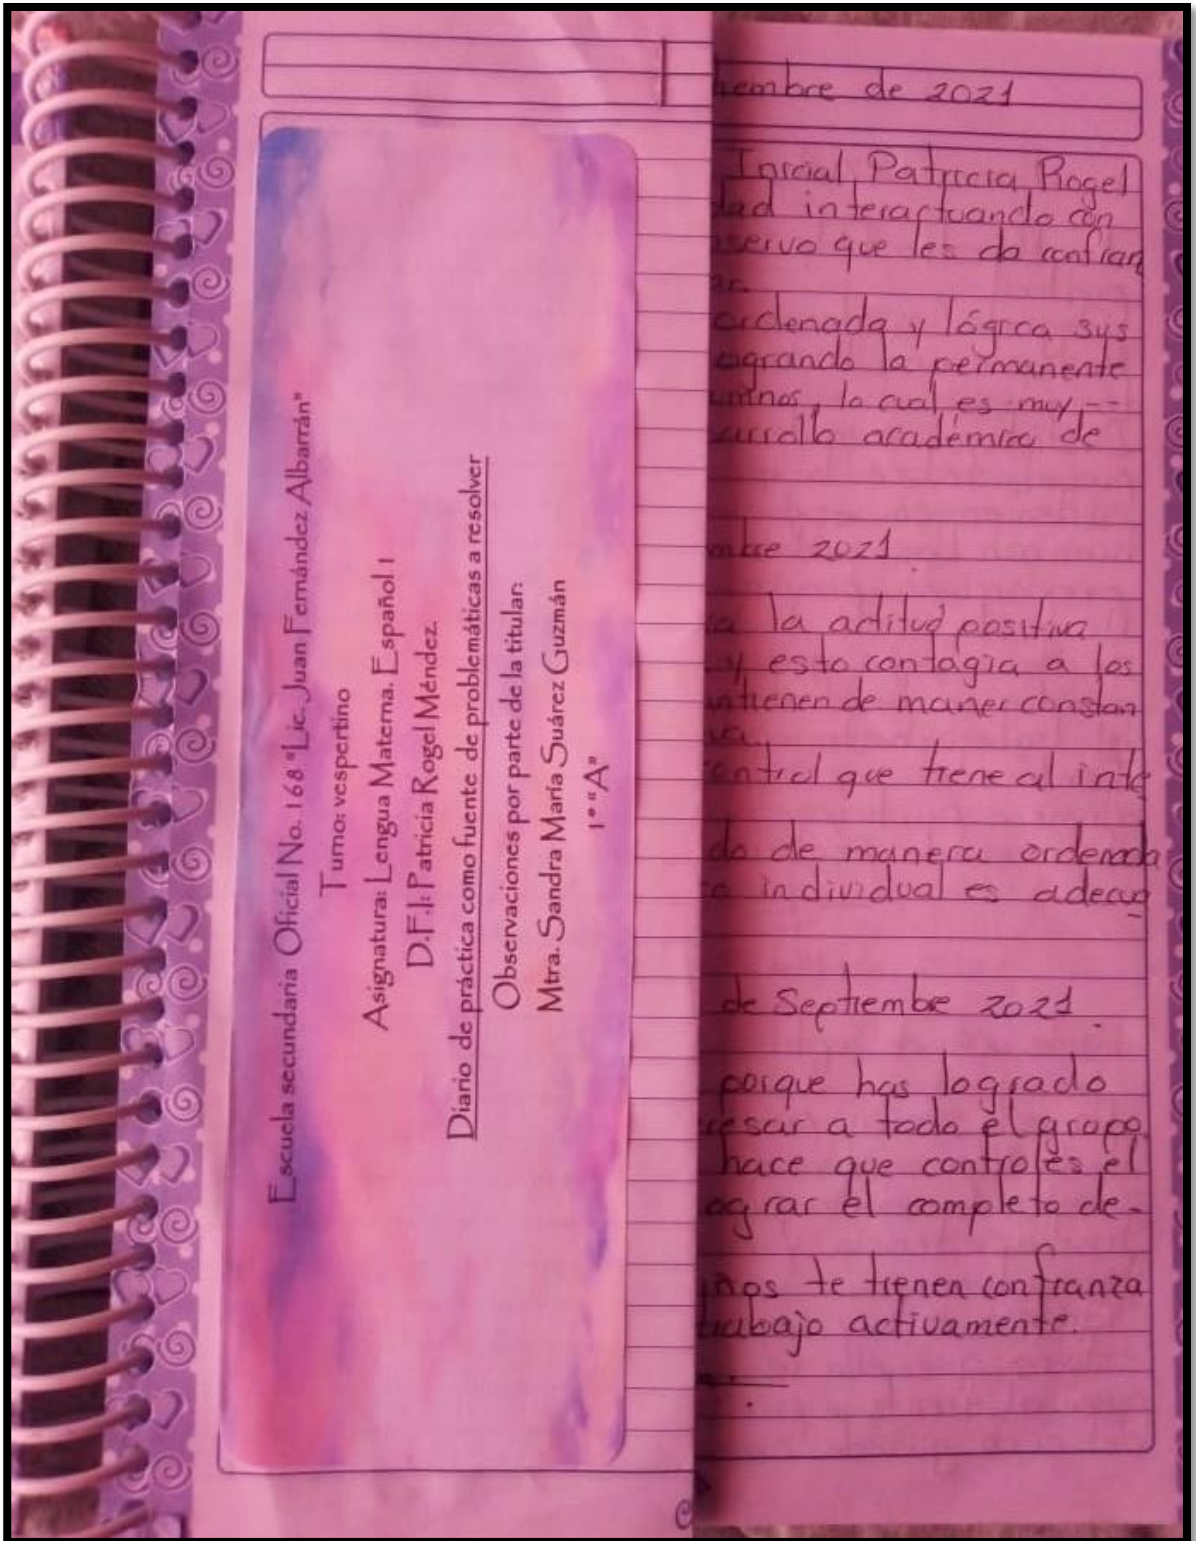 Escuela secundaria Oficial No. 168 "Lic. Juan Fernández Albarrán"
Turno: vespertino
Asignatura: Lengua Materna. Español I
D.F.I: Patricia Rogel Méndez.
Diario de práctica como fuente de problemáticas a resolver
Observaciones por parte de la titular:
Mtra. Sandra María Suárez Guzmán
1° "A"
iembre de 2021
Inicial Patricia Rogel
dad interactuando con
servo que les da confian
ar.
ordenada y lógica sus
ogrando la permanente
umnos, lo cual es muy --
arrollo académico de
mbre 2021.
a la actitud positiva
y esto contagia a los
ntienen de maner constan
ontrol que tiene al inte
do de manera ordenada
o individual es adecua
de Septiembre 2021.
porque has logrado
resar a todo el grupo
hace que controles el
ograr el completo de-
nos te tienen confianza
trabajo activamente.